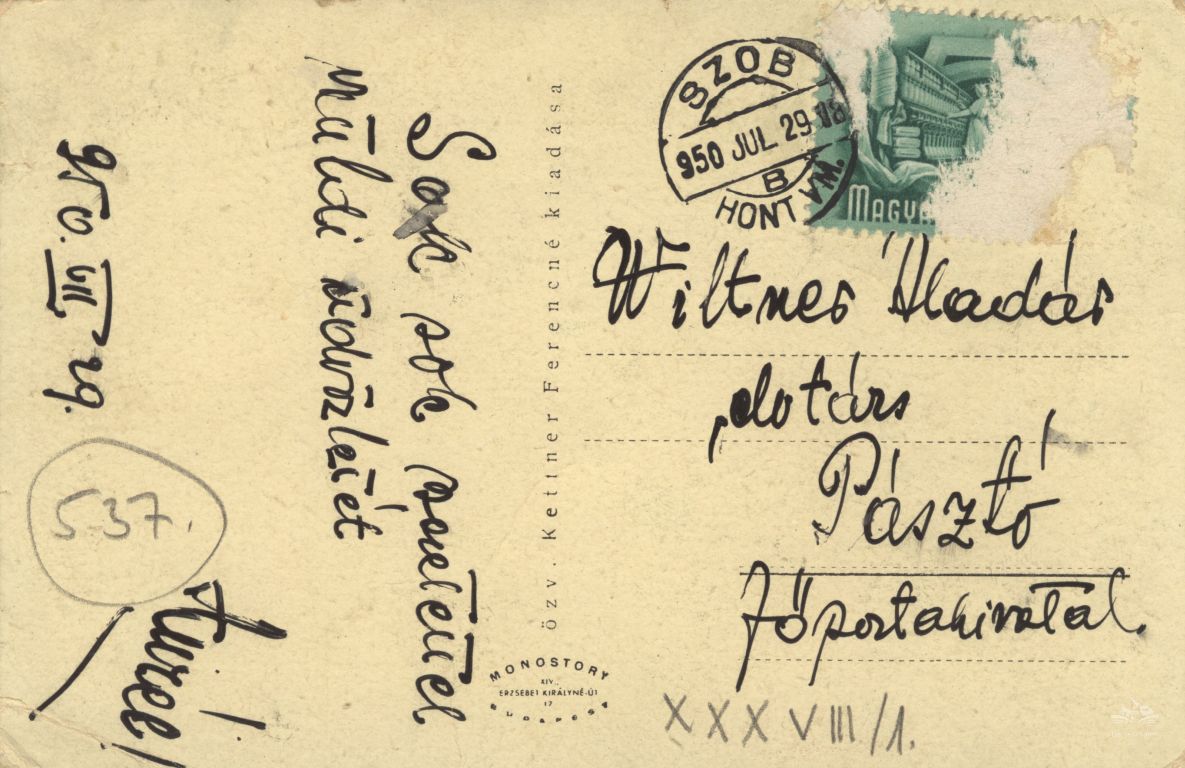 SZOB
950 JUL. 29
B
HONT VM.
MAGYA
Sok sok szeretettel
küldi üdvözletét
950. VII 29.
Aurél!
5-37.
Özv. Kettiner Ferencné kiadása
Wiltner Aladár
elvtárs
Pásztó
Főpostahivatal
MONOSTORY
XIV.,
ERZSEBET KIRÁLYNÉ-ÚT
17
BUDAPEST
XXXVIII/1.